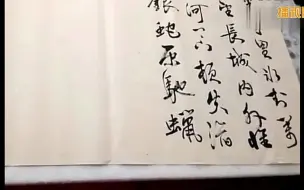 里冰封萬
望長城內外惟
河上下頓失滔
銀蛇原馳蠟